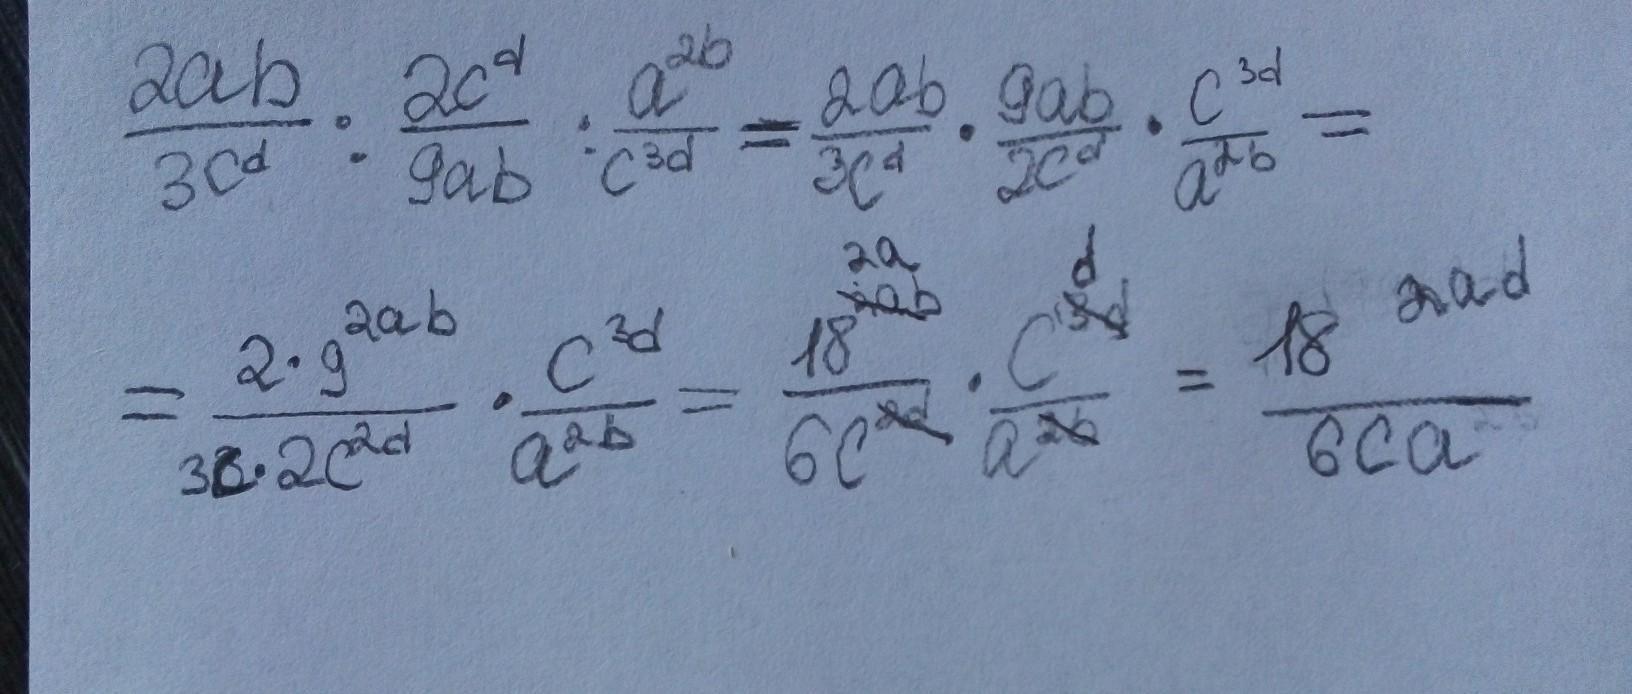 2ab/3c^d : 2c^d/9ab : a^2b/c^3d = 2ab/3c^d · 9ab/2c^d · c^3d/a^2b =
= 2·9^2ab/3·2c^2d · c^3d/a^2b = 18^2a/6c · c^d/a = 18^2ad/6ca